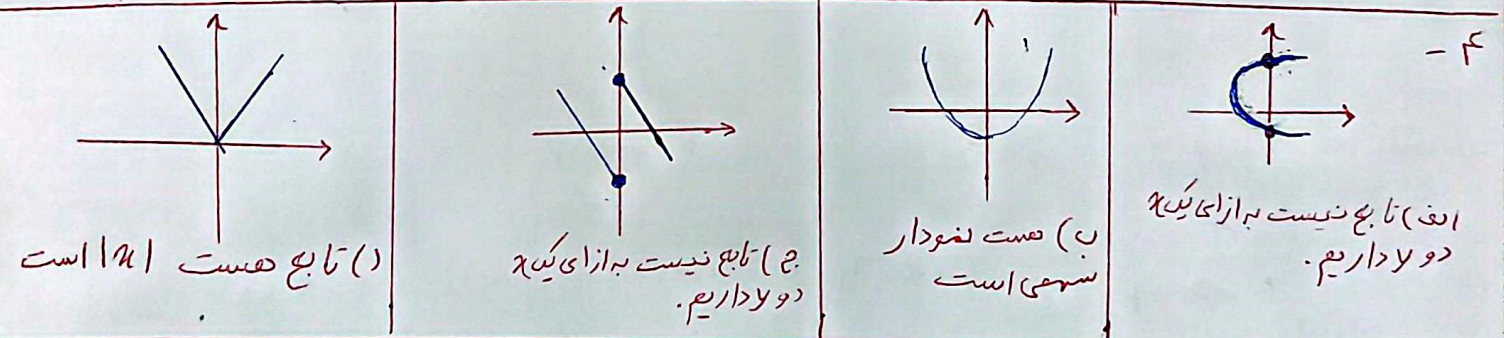 ۴ -
الف) تابع نیست به ازای یک x
دو y داریم.
ب) هست نمودار
سهمی است
ج) تابع نیست به ازای یک x
دو y داریم.
د) تابع هست |x| است